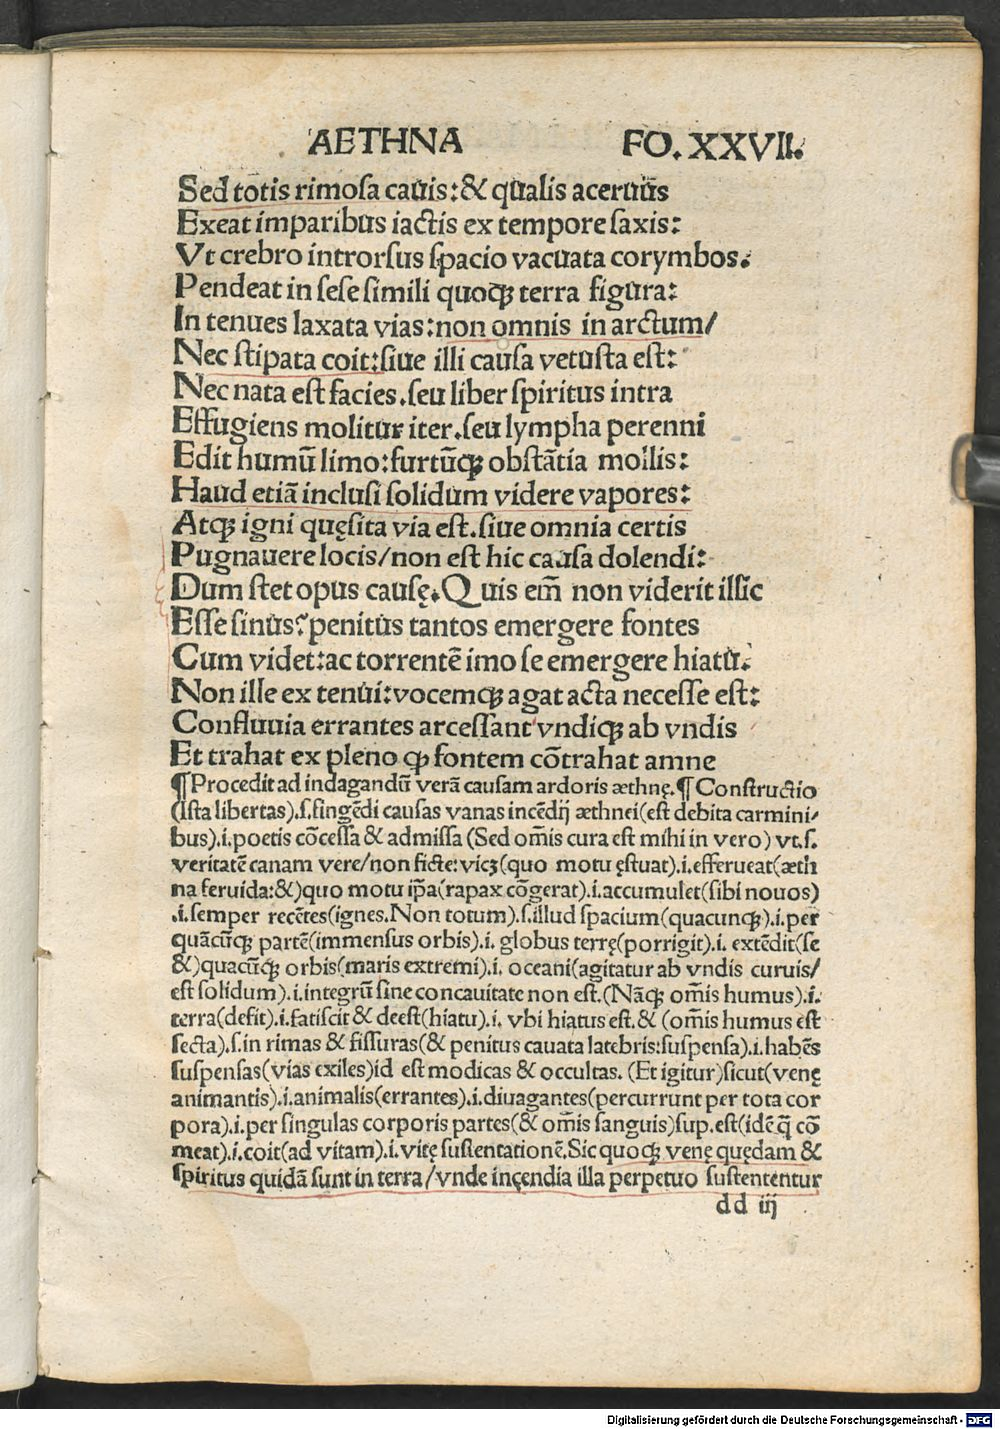 AETHNA FO. XXVII.
Sed totis rimosa cauis: & qualis aceruus
Exeat imparibus iactis ex tempore saxis:
Vt crebro introrsus spacio vacuata corymbos.
Pendeat in sese simili quoqꝫ terra figura:
In tenues laxata vias: non omnis in arctum/
Nec stipata coit: siue illi causa vetusta est:
Nec nata est facies. seu liber spiritus intra
Effugiens molitur iter. seu lympha perenni
Edit humū limo: furtūqꝫ obstātia mollis:
Haud etiā inclusi solidum videre vapores:
Atqꝫ igni quęsita via est. siue omnia certis
Pugnauere locis/non est hic causa dolendi:
Dum stet opus causę. Quis em̄ non viderit illsic
Esse sinus? penitus tantos emergere fontes
Cum videt: ac torrentē imo se emergere hiatu.
Non ille ex tenui: vocemqꝫ agat acta necesse est:
Confluuia errantes arcessant vndiqꝫ ab vndis
Et trahat ex pleno ꝙ fontem cōtrahat amne
¶ Procedit ad indagandū verā causam ardoris æthnę. ¶ Constructio
(Ista libertas).s. fingēdi causas vanas incēdij æthnei (est debita carmini/
bus).i. poetis cōcessa & admissa (Sed om̄is cura est mihi in vero) vt.s.
veritatē canam vere/non ficte: vicꝫ (quo motu ęstuat).i. efferueat (æth
na feruida: &) quo motu ip̄a (rapax cōgerat).i. accumulet (sibi nouos)
.i. semper recētes (ignes. Non totum).s. illud spacium (quacunqꝫ).i. per
quācūqꝫ partē (immensus orbis).i. globus terrę (porrigit).i. extēdit (se
&) quacūqꝫ orbis (maris extremi).i. oceani (agitatur ab vndis curuis/
est solidum).i. integrū sine concauitate non est. (Nāqꝫ om̄is humus).i.
terra (defit).i. fatiscit & deest (hiatu).i. vbi hiatus est. & (om̄is humus est
secta).s. in rimas & fissuras (& penitus cauata latebris: suspensa).i. habēs
suspensas (vias exiles) id est modicas & occultas. (Et igitur) sicut (venę
animantis).i. animalis (errantes).i. diuagantes (percurrunt per tota cor
pora).i. per singulas corporis partes (& om̄is sanguis) sup. est (idē q̄ cō
meat).i. coit (ad vitam).i. vitę sustentationē. Sic quoqꝫ venę quędam &
spiritus quidā sunt in terra/vnde inçendia illa perpetuo sustententur
dd iij
Digitalisierung gefördert durch die Deutsche Forschungsgemeinschaft - DFG